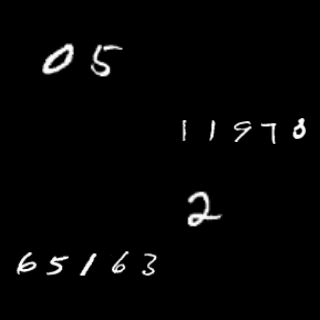 05
11978
2
65163